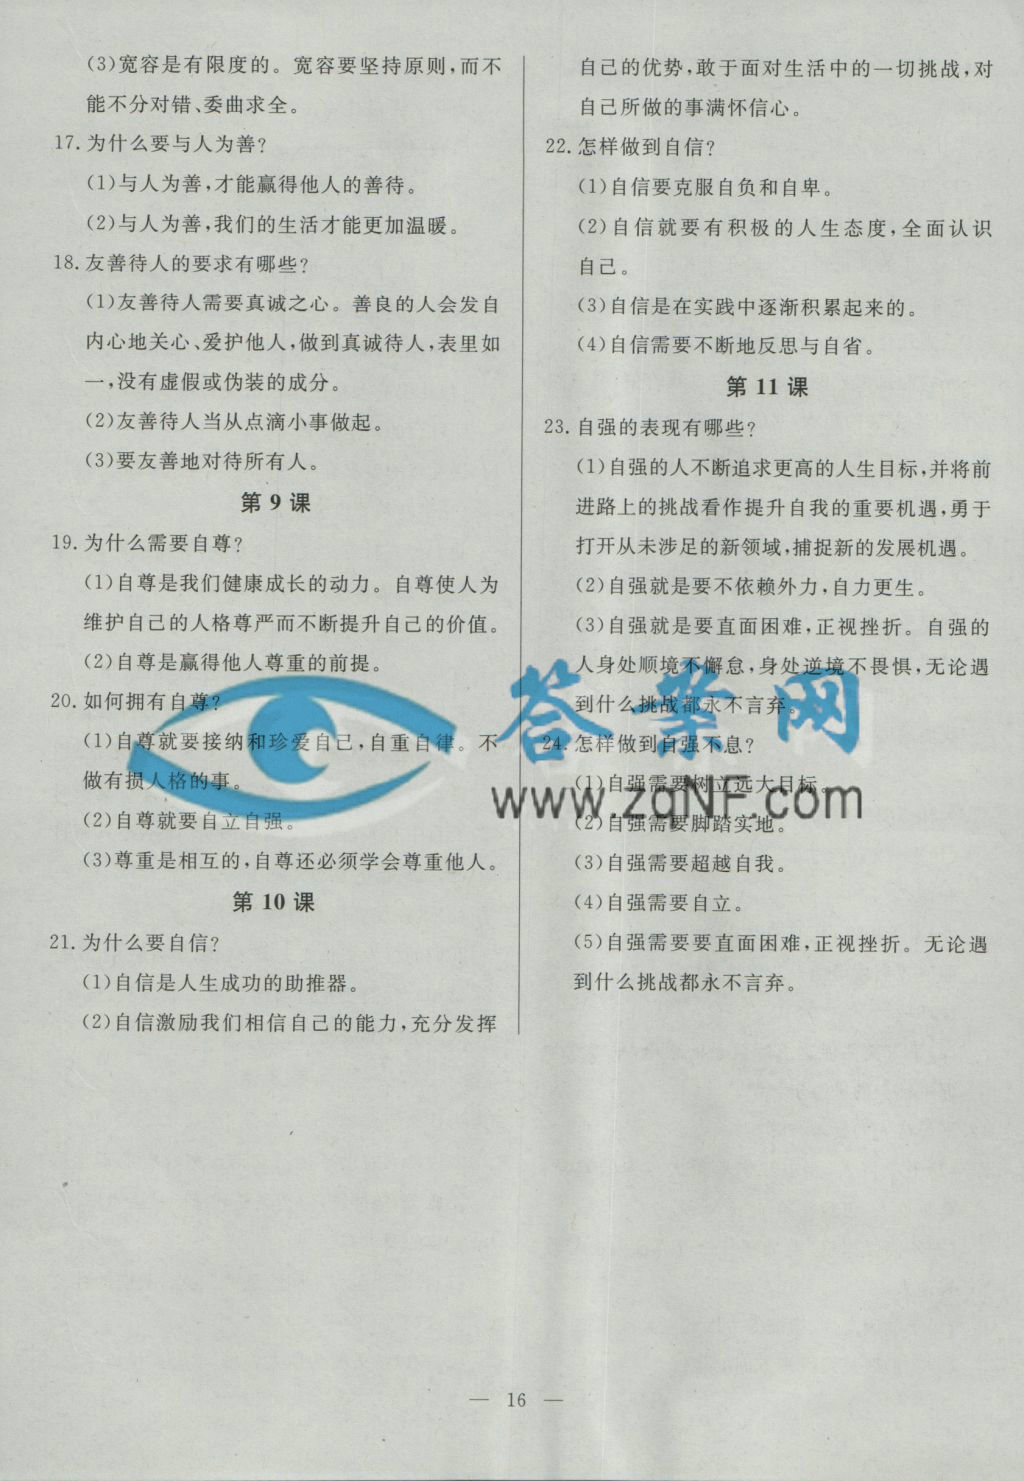 (3)宽容是有限度的。宽容要坚持原则,而不
能不分对错、委曲求全。
17. 为什么要与人为善?
(1)与人为善,才能赢得他人的善待。
(2)与人为善,我们的生活才能更加温暖。
18. 友善待人的要求有哪些?
(1)友善待人需要真诚之心。善良的人会发自
内心地关心、爱护他人,做到真诚待人,表里如
一,没有虚假或伪装的成分。
(2)友善待人当从点滴小事做起。
(3)要友善地对待所有人。
第 9 课
19. 为什么需要自尊?
(1)自尊是我们健康成长的动力。自尊使人为
维护自己的人格尊严而不断提升自己的价值。
(2)自尊是赢得他人尊重的前提。
20. 如何拥有自尊?
(1)自尊就要接纳和珍爱自己,自重自律。不
做有损人格的事。
(2)自尊就要自立自强。
(3)尊重是相互的,自尊还必须学会尊重他人。
第 10 课
21. 为什么要自信?
(1)自信是人生成功的助推器。
(2)自信激励我们相信自己的能力,充分发挥
自己的优势,敢于面对生活中的一切挑战,对
自己所做的事满怀信心。
22. 怎样做到自信?
(1)自信要克服自负和自卑。
(2)自信就要有积极的人生态度,全面认识
自己。
(3)自信是在实践中逐渐积累起来的。
(4)自信需要不断地反思与自省。
第 11 课
23. 自强的表现有哪些?
(1)自强的人不断追求更高的人生目标,并将前
进路上的挑战看作提升自我的重要机遇,勇于
打开从未涉足的新领域,捕捉新的发展机遇。
(2)自强就是要不依赖外力,自力更生。
(3)自强就是要直面困难,正视挫折。自强的
人身处顺境不懈怠,身处逆境不畏惧,无论遇
到什么挑战都永不言弃。
24. 怎样做到自强不息?
(1)自强需要树立远大目标。
(2)自强需要脚踏实地。
(3)自强需要超越自我。
(4)自强需要自立。
(5)自强需要要直面困难,正视挫折。无论遇
到什么挑战都永不言弃。
答案网
www.zqNF.com
— 16 —